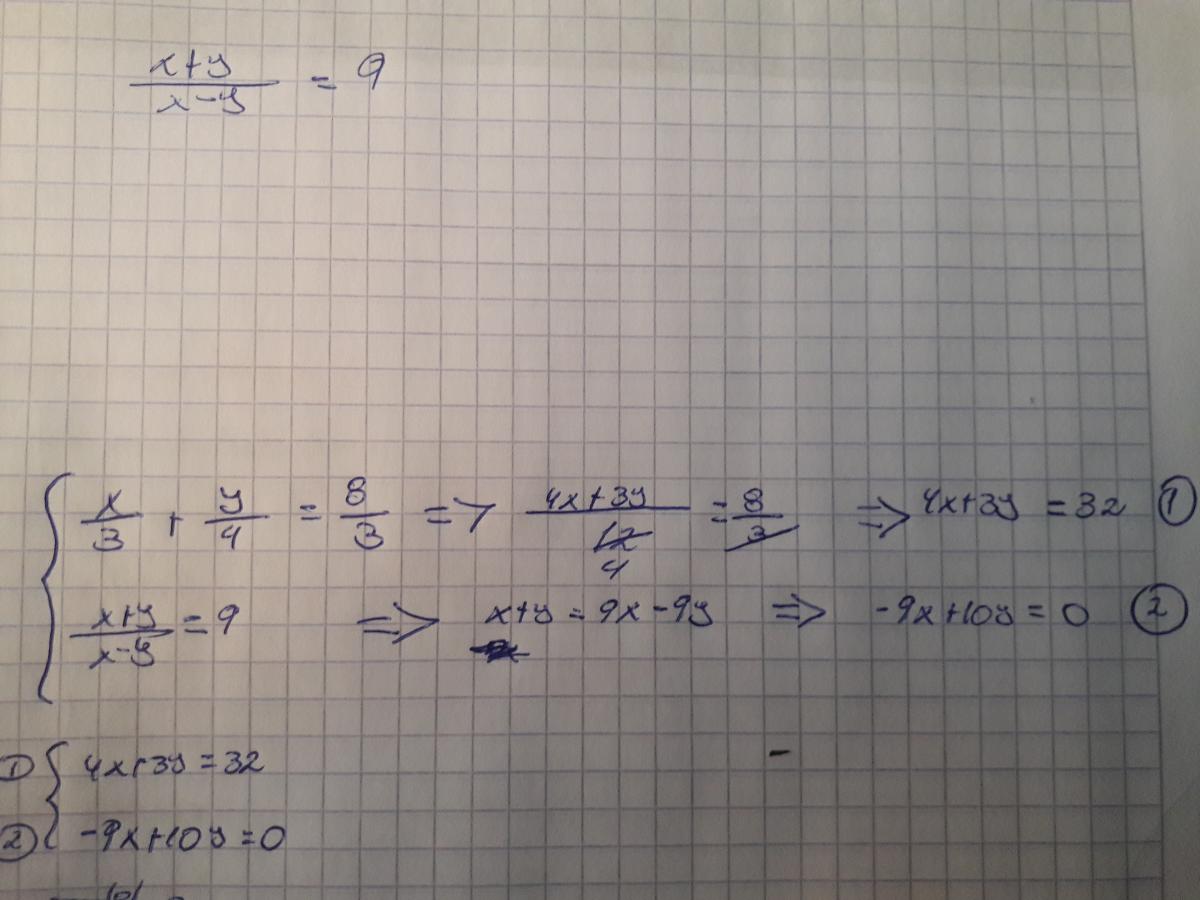 x+y/x-y = 9
x/3 + y/4 = 8/3 => 4x+3y/12 4 = 8/3 => 4x+3y = 32 ①
x+y/x-y = 9 => x+y = 9x-9y => -9x+10y = 0 ②
① 4x+3y = 32
② -9x+10y = 0